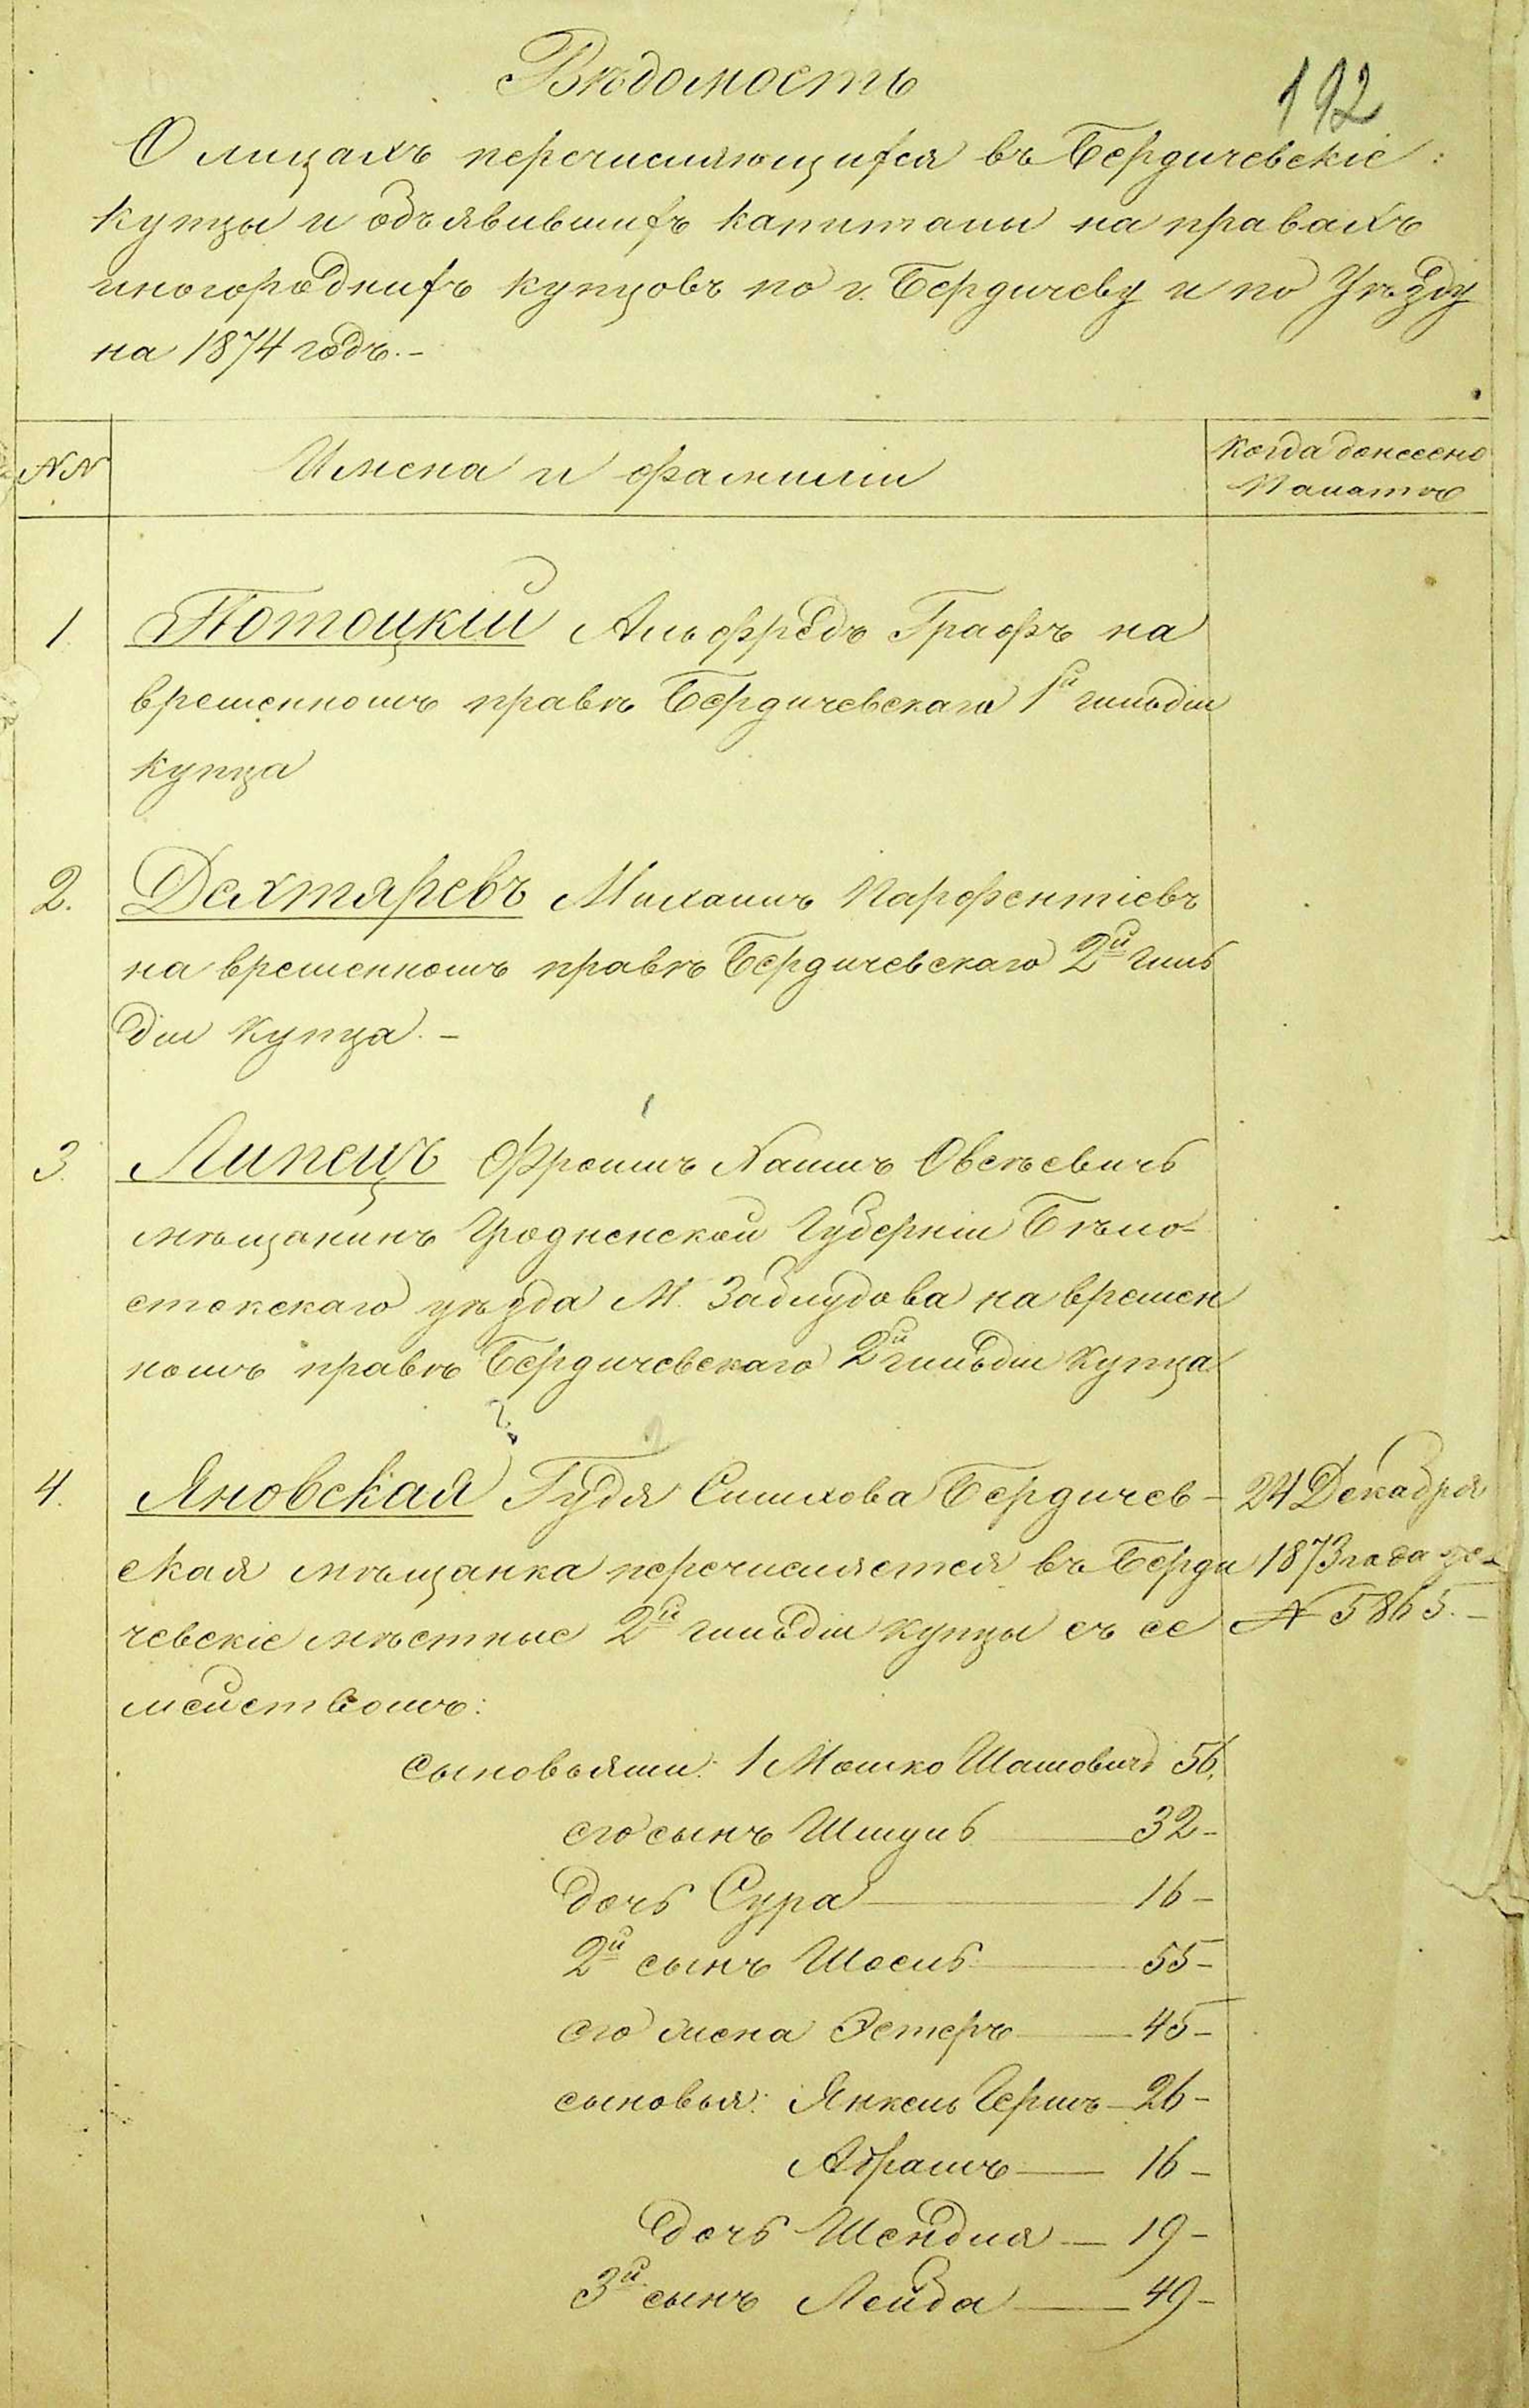 Вѣдомость
192
О лицахъ перечисляющихся въ Бердичевскіе
купцы и объявившихъ капиталы на правахъ
иногороднихъ купцовъ по г. Бердичеву и по Уѣзду
на 1874 годъ.-
NN
Имена и фамиліи
Когда донесено
Палатѣ
1.
Потоцкій Альфредъ Графъ на
временномъ правѣ Бердичевскаго 1й гильдіи
купца
2.
Дехтяревъ Михаилъ Парфентіевъ
на временномъ правѣ Бердичевскаго 2й гиль
діи купца.-
3.
Липецъ Фроимъ Хаимъ Овсѣевичъ
мѣщанинъ Гродненской Губерніи Бѣло-
стокскаго уѣзда М. Заблудова на времен
номъ правѣ Бердичевскаго 2й гильдіи купца
4.
Яновская Гудя Симхова Бердичев-
ская мѣщанка перечисляется въ Берди
чевскіе мѣстные 2й гильдіи купцы съ се
мействомъ:
24 Декабря
1873 года за
N 5865.-
сыновьями: 1 Мошко Шамовичъ 56.
его сынъ Шмуль 32-
дочь Сура 16-
2й сынъ Иосель 55-
его жена Эстеръ 45-
сыновья: Янкель Гершъ 26-
Абрамъ 16-
дочь Шендля 19-
3й сынъ Лейба 49-